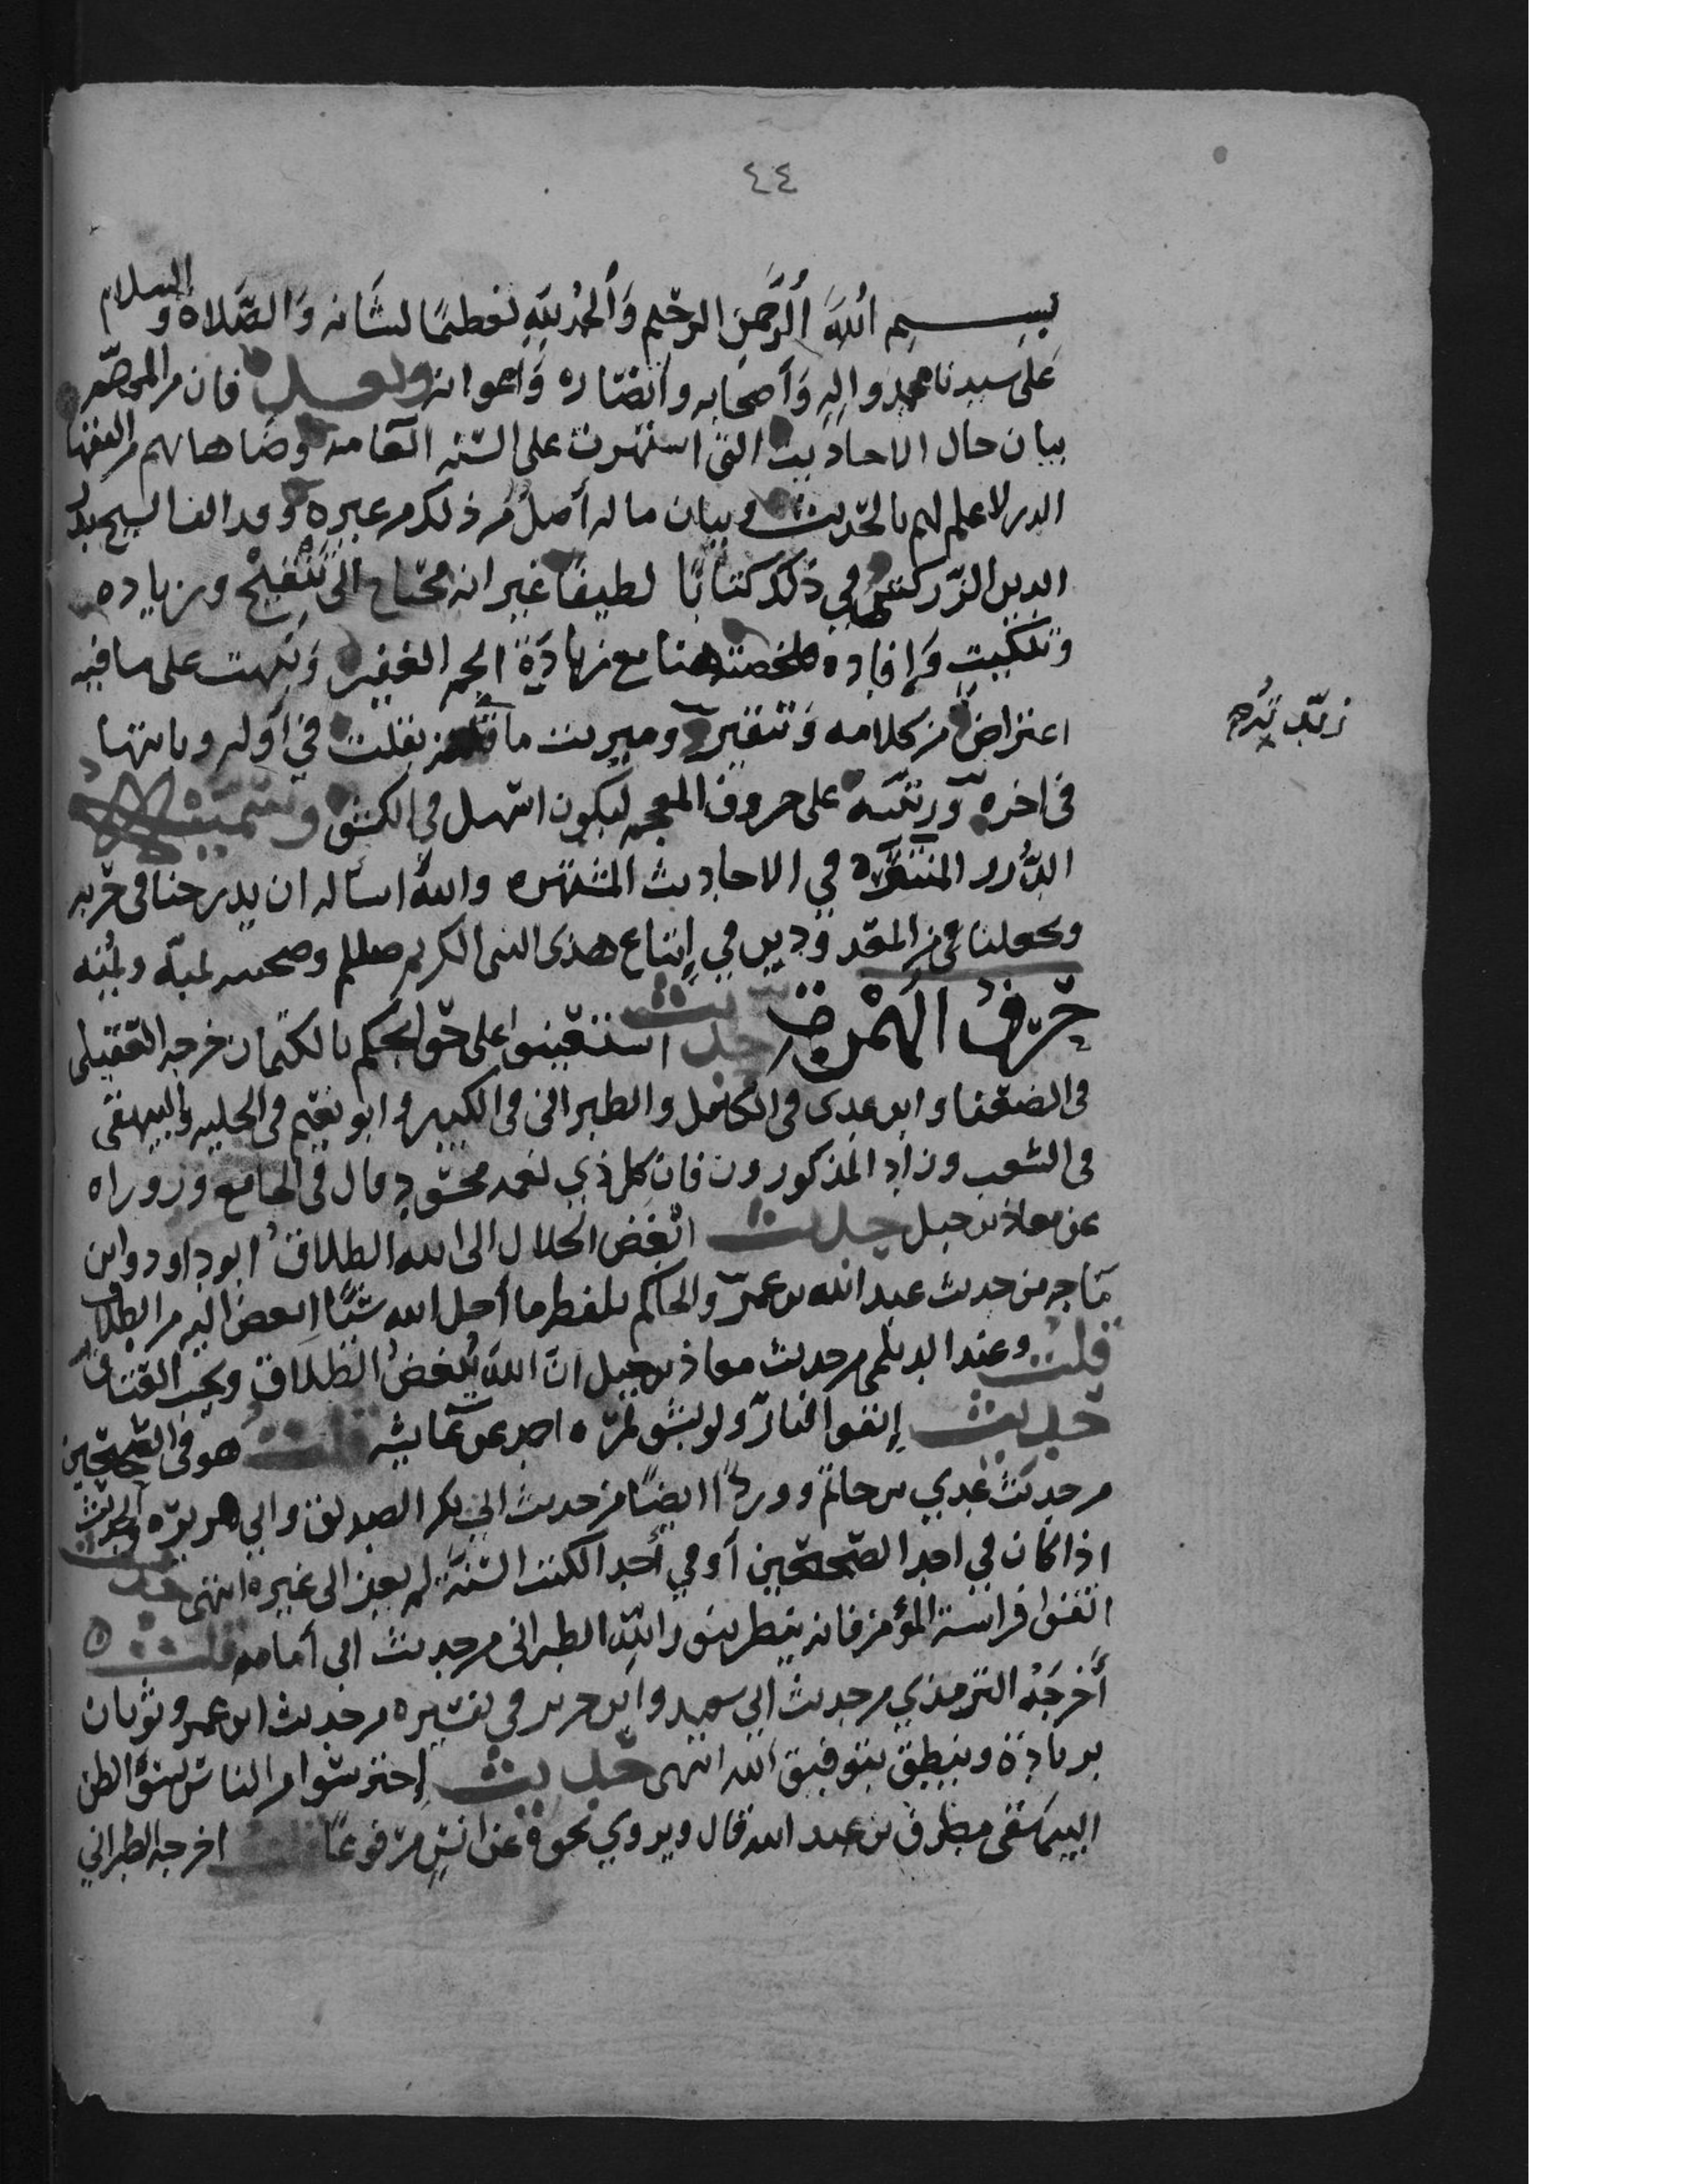 ٤٤
بســم الله الرحمن الرحيم والحمد لله تعظيما لشانه والصلاة والسلام
على سيدنا محمد واله وأصحابه وأنصاره وأعوانه وبعـد فان من المهم
بيان حال الاحاديث التى اشتهرت على السنة العامه وضاهاهم من الفقها
الدىن لاعلم لهم بالحديث وبيان ما له أصل من ذلك من غيره وقد الف الشيخ بدر
الدين الزركشي في ذلك كتابا لطيفا غير انه محتاج الى تنقيح وزياده
وتنكيت وإفاده فلخصته هنا مع زيادة الجم الغفير ونبهت على ما فيه
اعتراض من كلامه وتنقير وميزت ما بقلت في أوله وبانتها
فى اخره ورتبته على حروف المعجم ليكون اسهل في الكشف وسميته
الدرر المنتثره في الاحاديث المشتهره والله اساله ان يدرجنا فى حزبه
ويجعلنا من فى إتباع هدى النبى الكريم صلعم وصحبه بمنه ويمنه
حرف الهمزة حديث استعينوا على حوائجكم بالكتمان خرجه العقيلى
فى الضعفا وابن عدى فى الكامل والطبرانى فى الكبير وابو نعيم فى الحليه والبيهقى
فى الشعب وزاد المذكورون فان كل ذي نعمه محسود قال فى الجامع ورواه
عن معاذ بن جبل حديث ابغض الحلال الى الله الطلاق ابو داود وابن
ماجه من حديث عبد الله بن عمر والحاكم بلفظ ما أحل الله شيئا ابغض اليه من الطلاق
قلت وعند الديلمى من حديث معاذ بن جبل ان الله يبغض الطلاق ويحب العتاق
حديث إتقوا النار ولو بشق تمره احمد عن عايشه قلت هو فى الصحيحين
من حديث عدي بن حاتم وورد ايضا من حديث ابي بكر الصديق وابي هريره والحديث
اذا كان في احد الصحيحين أو في أحد الكتب الستة لم يعز الى غيره انتهى حديث
اتقوا فراسة المؤمن فانه ينظر بنور الله الطبرانى من حديث ابي أمامه قلت
أخرجه الترمذي من حديث ابي سعيد وابن جرير في تفسيره من حديث ابن عمر وثوبان
بزيادة وينطق بتوفيق الله انتهى حديث إحترسوا من الناس بسوء الظن
البيهقى مطرف بن عبد الله قال ويروي نحوه عن انس مرفوعا قلت اخرجه الطبراني